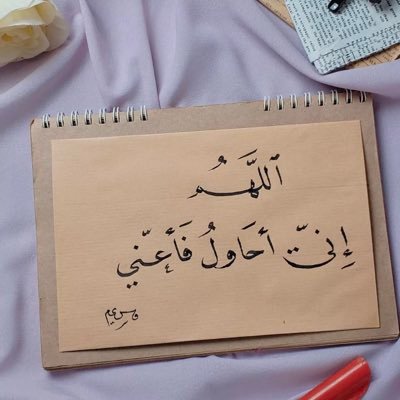 اَللَّهُمَّ
إِنِّي أحَاولُ فَأعِنّي